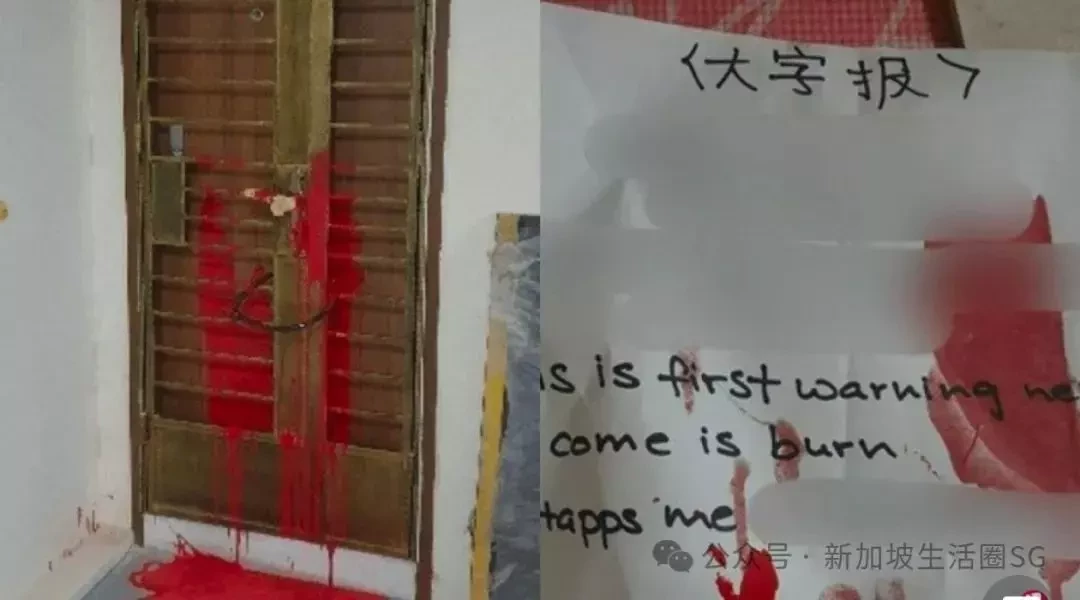 〈大字报〉
is is first warning ne
come is burn
tapps me
公众号 · 新加坡生活圈SG